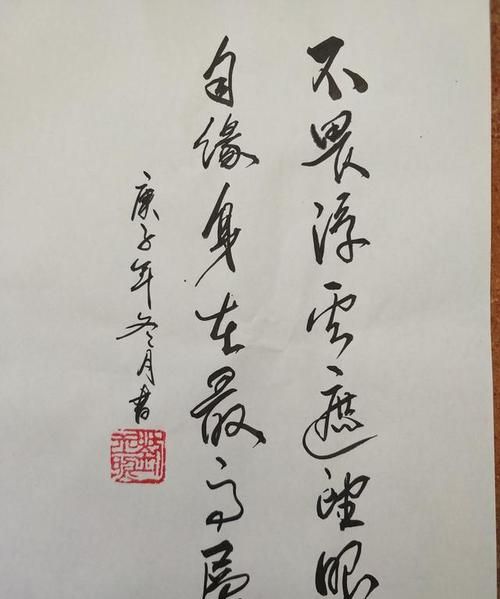 不畏浮云遮望眼
自缘身在最高层
庚子年冬月书